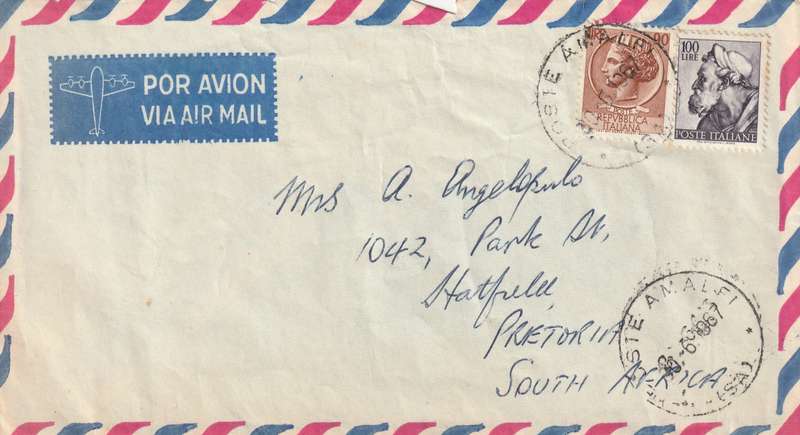 POR AVION
VIA AIR MAIL
LIRE 90
POSTE
REPVBBLICA
ITALIANA
100
LIRE
POSTE ITALIANE
POSTE AMALFI
Mrs A. Angelopulo
1042, Park St,
Hatfield,
PRETORIA
SOUTH AFRICA
POSTE AMALFI
6 1967
(SA)